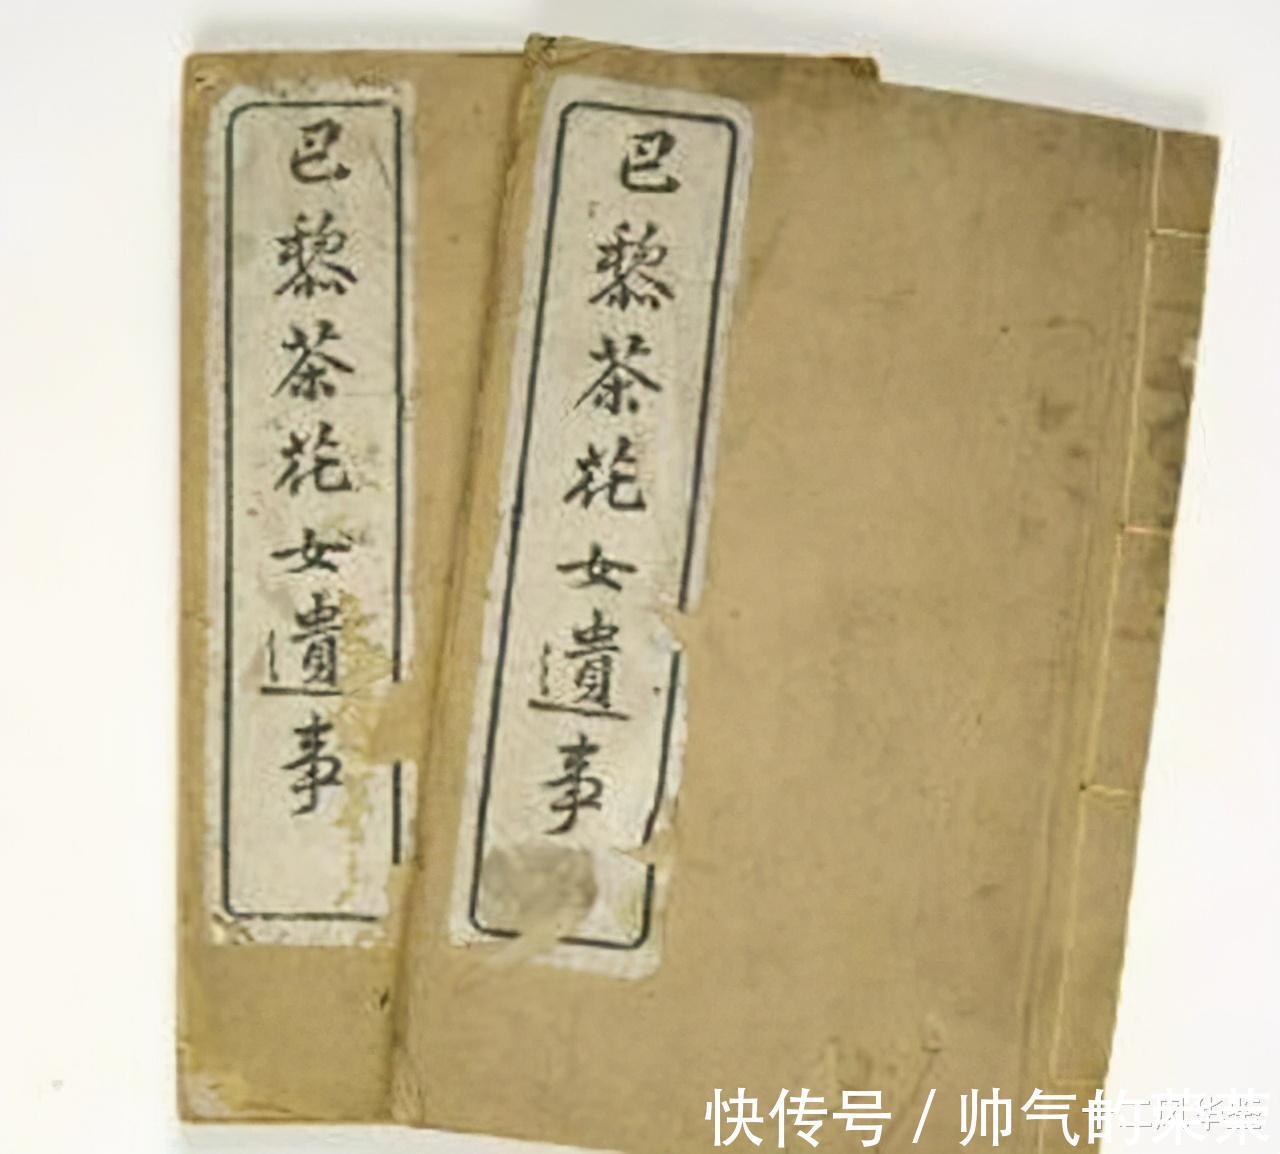 巴黎茶花女遺事
巴黎茶花女遺事
快传号 / 帅气的菜菜